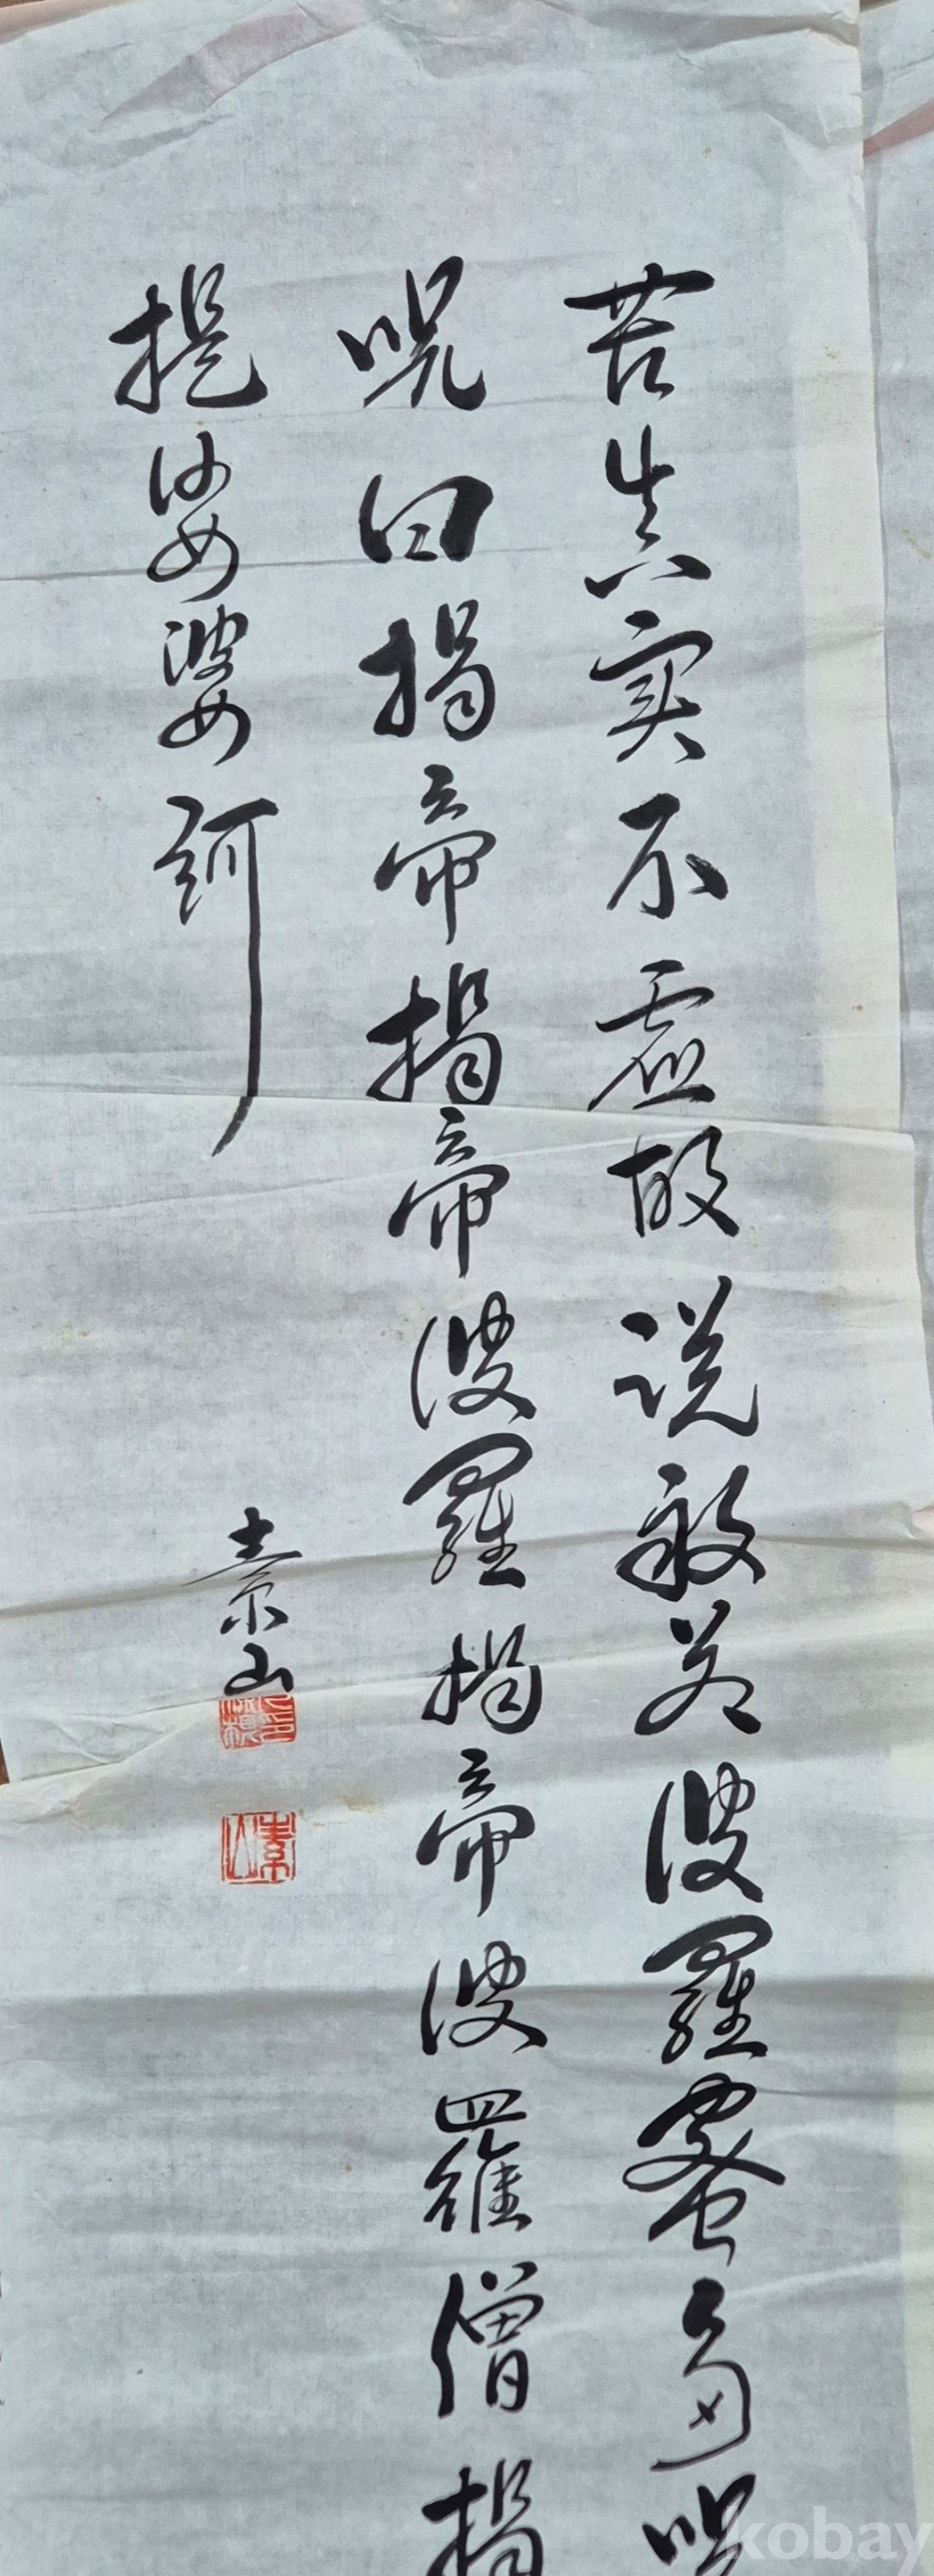 苦真實不虛故說般若波羅蜜多呪
呪曰揭帝揭帝波羅揭帝波羅僧揭
提娑婆訶
素山
素山
kobay